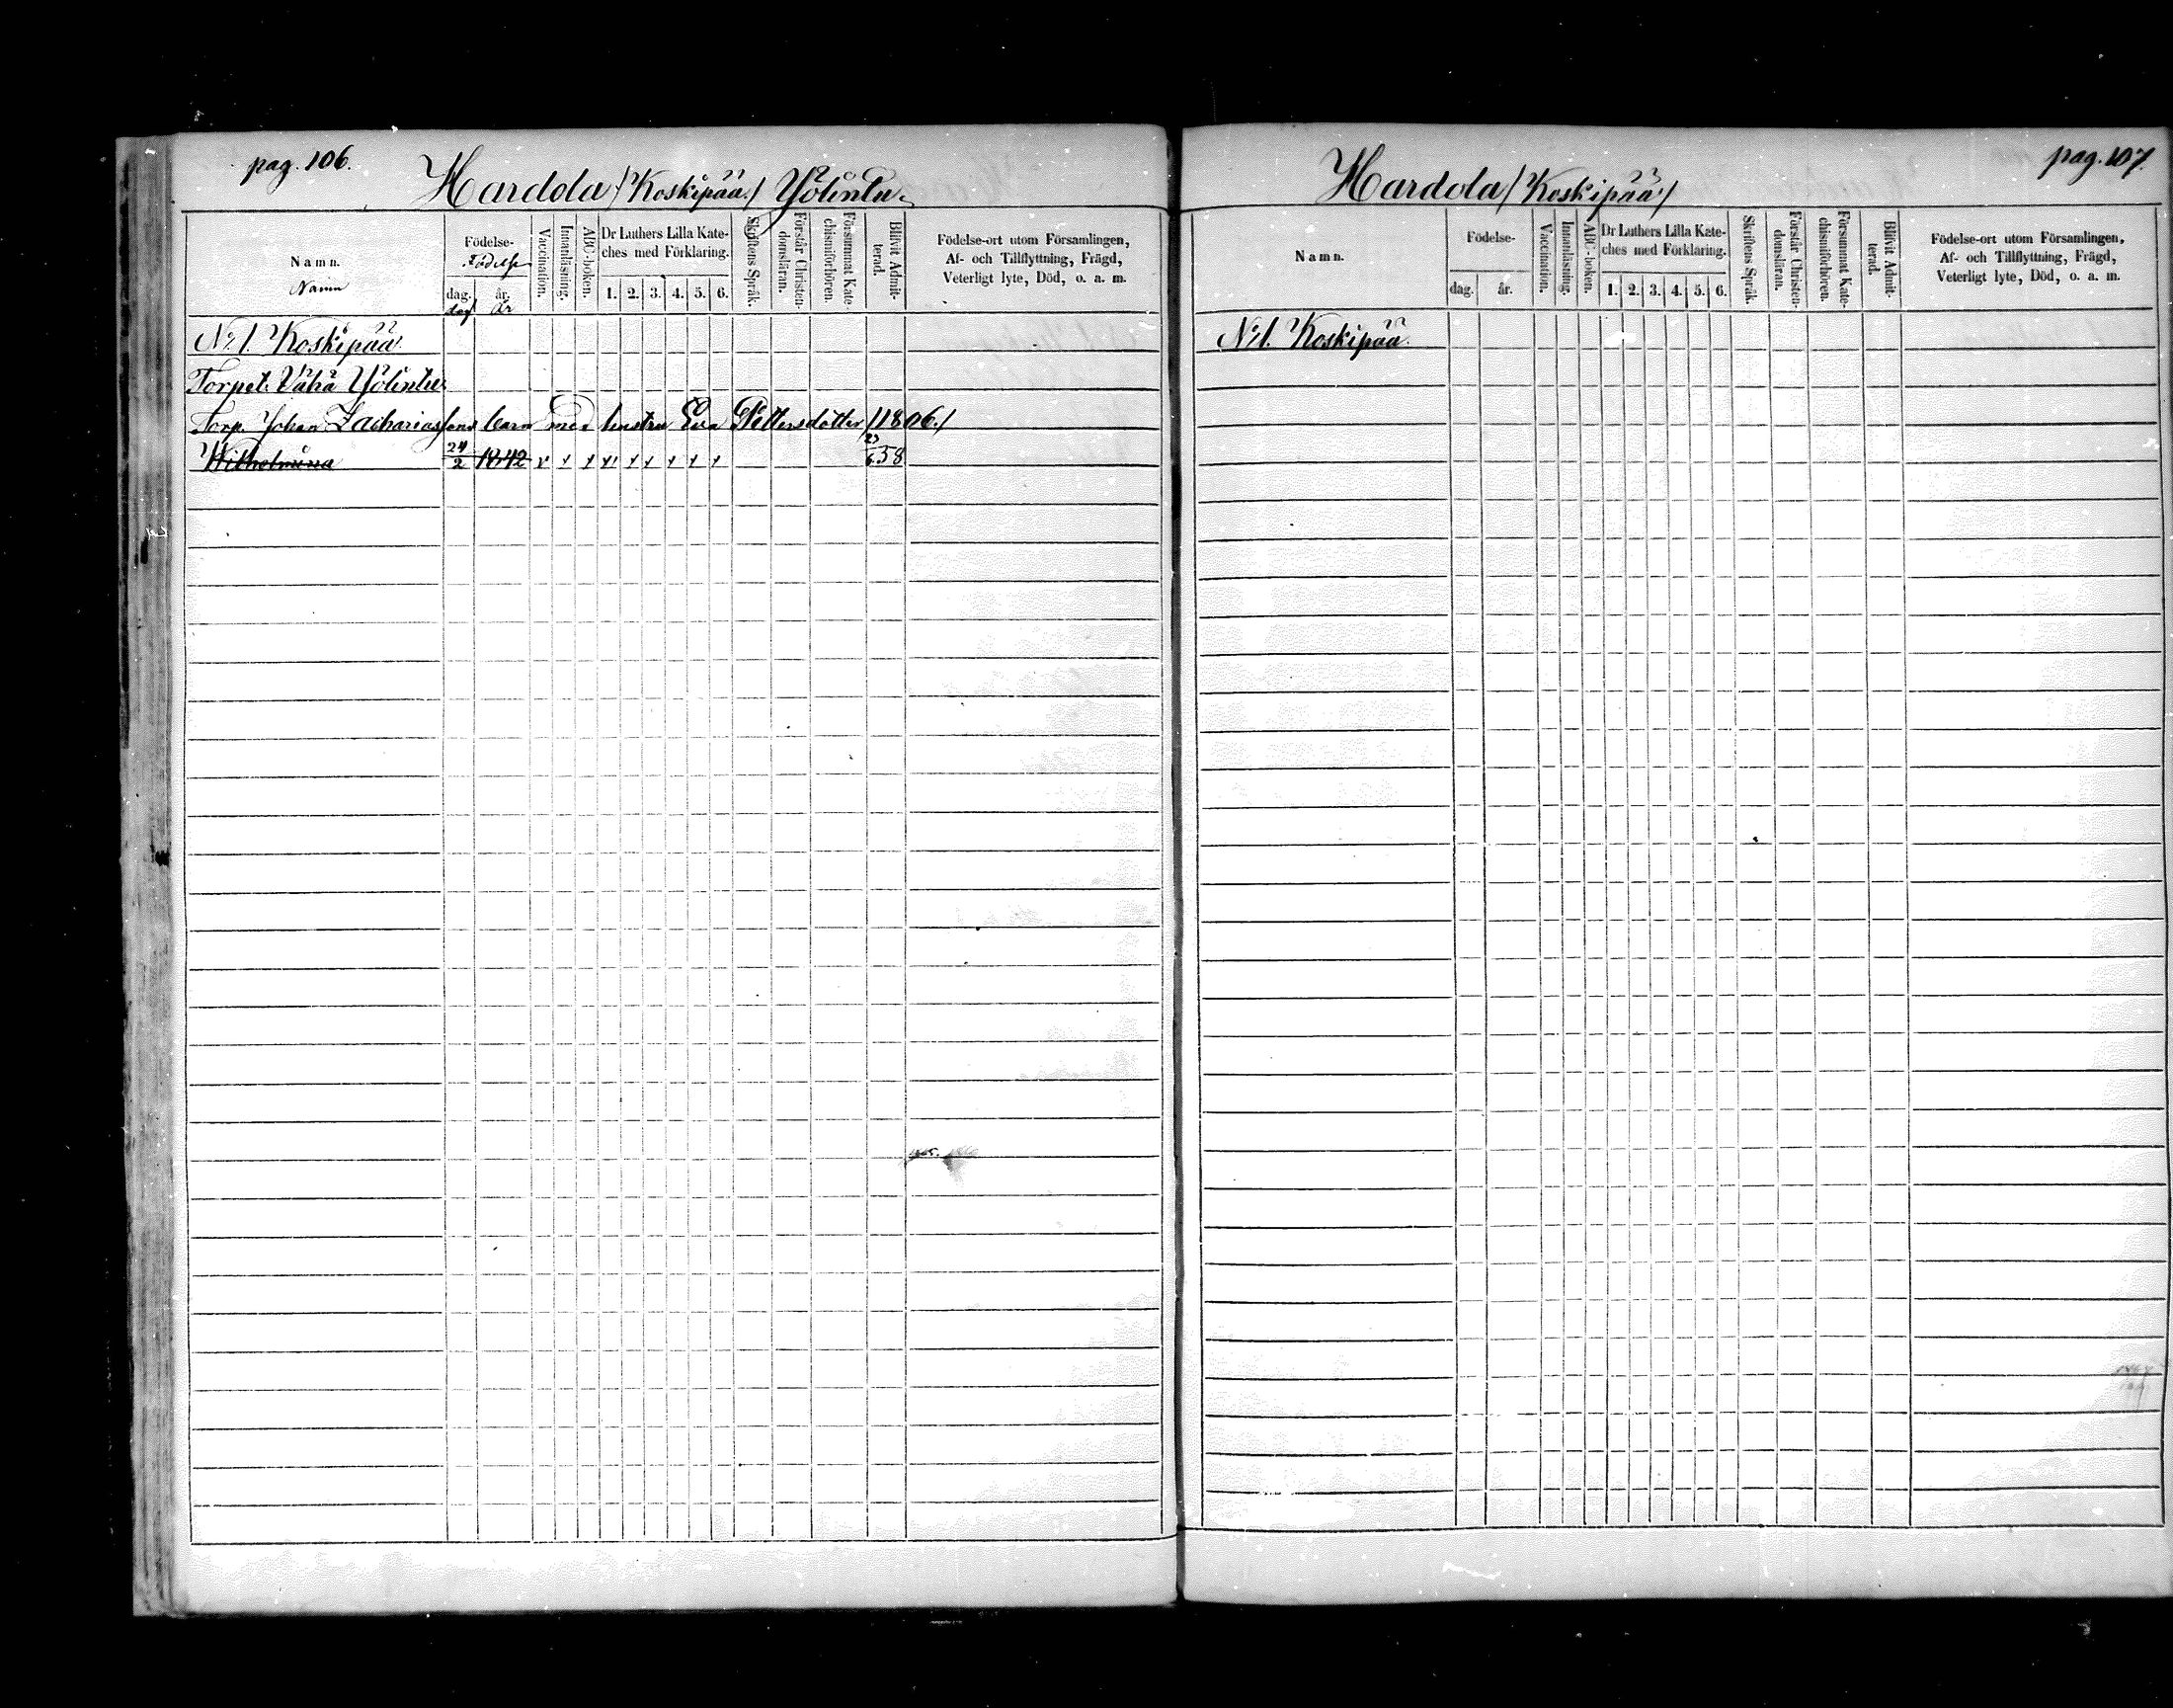 pag. 106.
Hardola /Koskipää/ Yölintu.
Namn.
Namn
Födelse-
Födelse
dag. år.
dag år
Vaccination.
Innanläsning.
ABC-boken.
Dr Luthers Lilla Kate-
ches med Förklaring.
1. 2. 3. 4. 5. 6.
Skriftens Språk.
Förstår Christen-
domsläran.
Försummat Kate-
chismiförhören.
Blifvit Admit-
terad.
Födelse-ort utom Församlingen,
Af- och Tillflyttning, Frägd,
Veterligt lyte, Död, o. a. m.
No 1. Koskipää.
Torpet. Vähä Yölintu
Torp. Johan Zachariassons barn med hustru Eva Pettersdotter /1806./
Wilhelmina 24/2 1842 x x x x x x x x x 23/6 58
pag. 107.
Hardola /Koskipää/
Namn.
Födelse-
dag. år.
Vaccination.
Innanläsning.
ABC-boken.
Dr Luthers Lilla Kate-
ches med Förklaring.
1. 2. 3. 4. 5. 6.
Skriftens Språk.
Förstår Christen-
domsläran.
Försummat Kate-
chismiförhören.
Blifvit Admit-
terad.
Födelse-ort utom Församlingen,
Af- och Tillflyttning, Frägd,
Veterligt lyte, Död, o. a. m.
No 1. Koskipää.